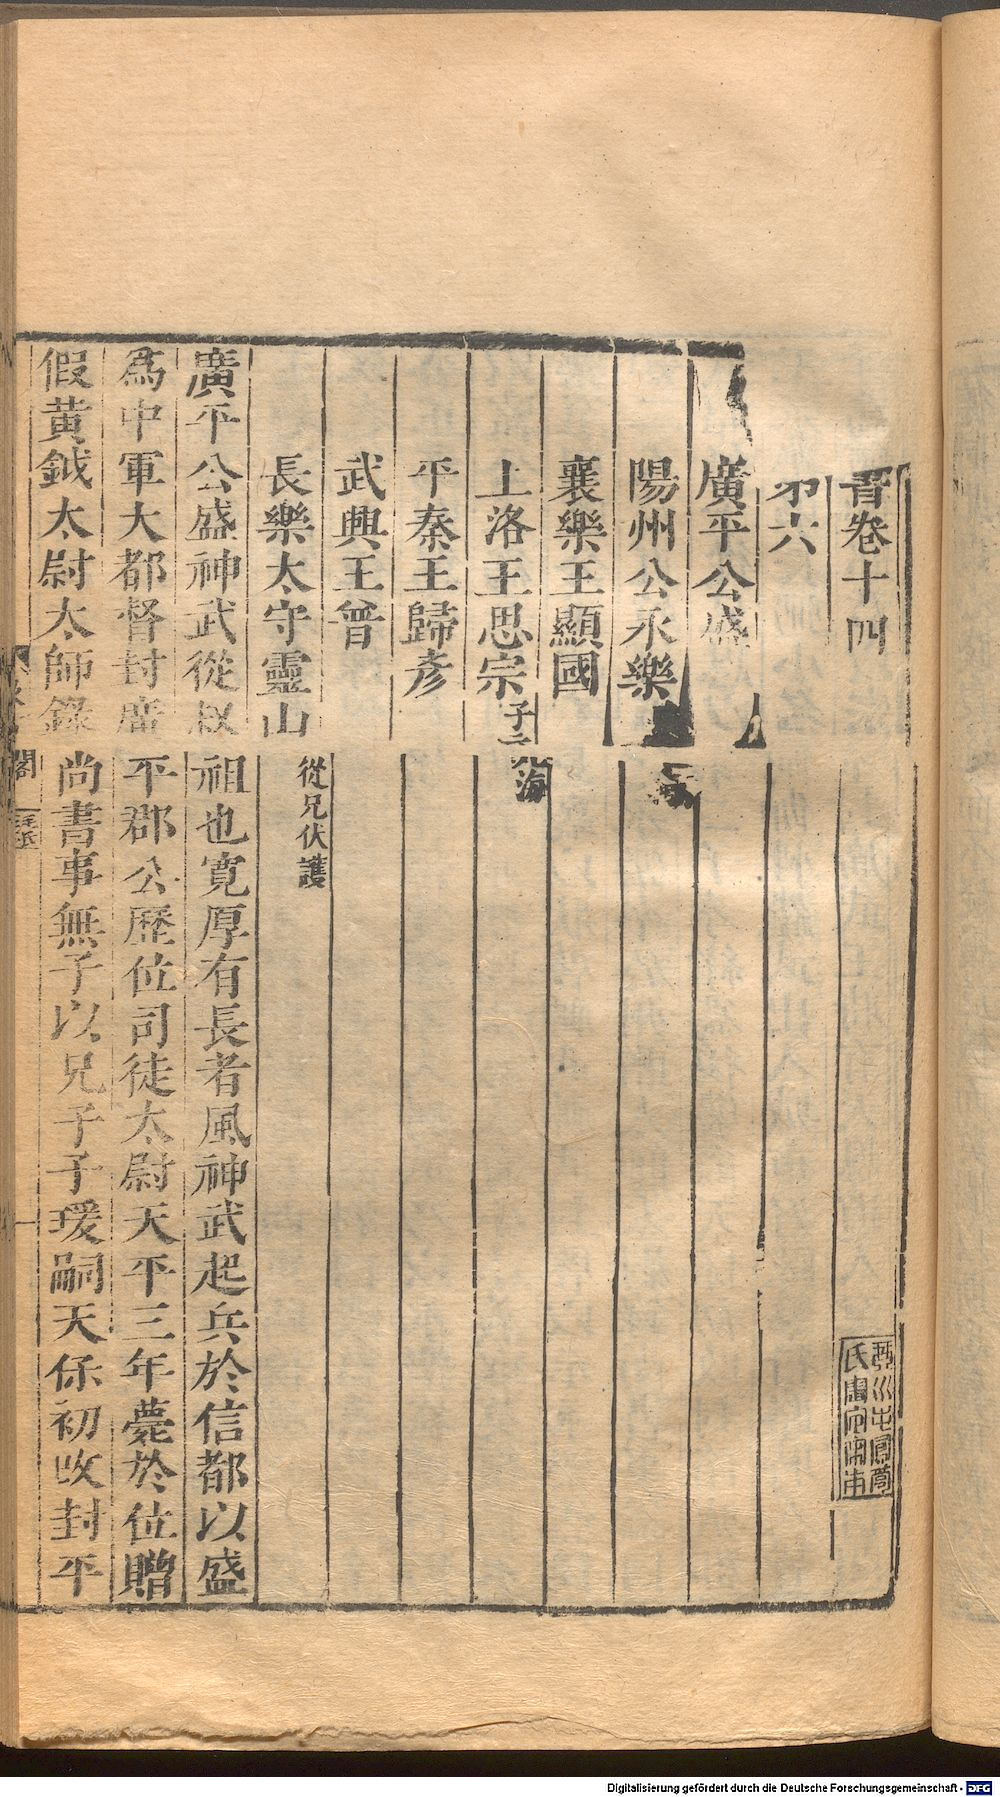 晉卷十四
六
廣平公盛
陽州公永樂
襄樂王顯國
上洛王思宗子元海
平秦王歸彥
武興王普
長樂太守靈山從兄伏護
廣平公盛神武從叔祖也寬厚有長者風神武起兵於信都以盛
爲中軍大都督封廣平郡公歷位司徒太尉天平三年薨於位贈
假黄鉞太尉太師錄尚書事無子以兄子子瑗嗣天保初改封平
閣
一
Digitalisierung gefördert durch die Deutsche Forschungsgemeinschaft - DFG